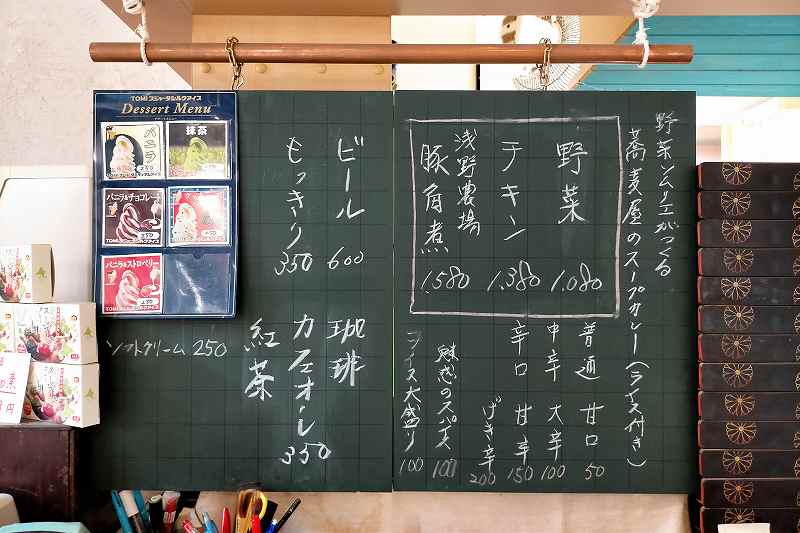 野菜ソムリエがつくる
蕎麦屋のスープカレー(ライス付き)
野菜 1.080
チキン 1.380
浅野農場
豚角煮 1.580
普通 甘口 50
中辛 大辛 100
辛口 甘辛 150
げき辛 200
魅惑のスパイス 100
ライス大盛り 100
ビール 600
もっきり 350
珈琲
カフェオーレ 350
紅茶
ソフトクリーム 250
TOMIフジャータシルクアイス
Dessert Menu
バニラ
250
抹茶
バニラ&チョコレート
250
250
バニラ&ストロベリー
250